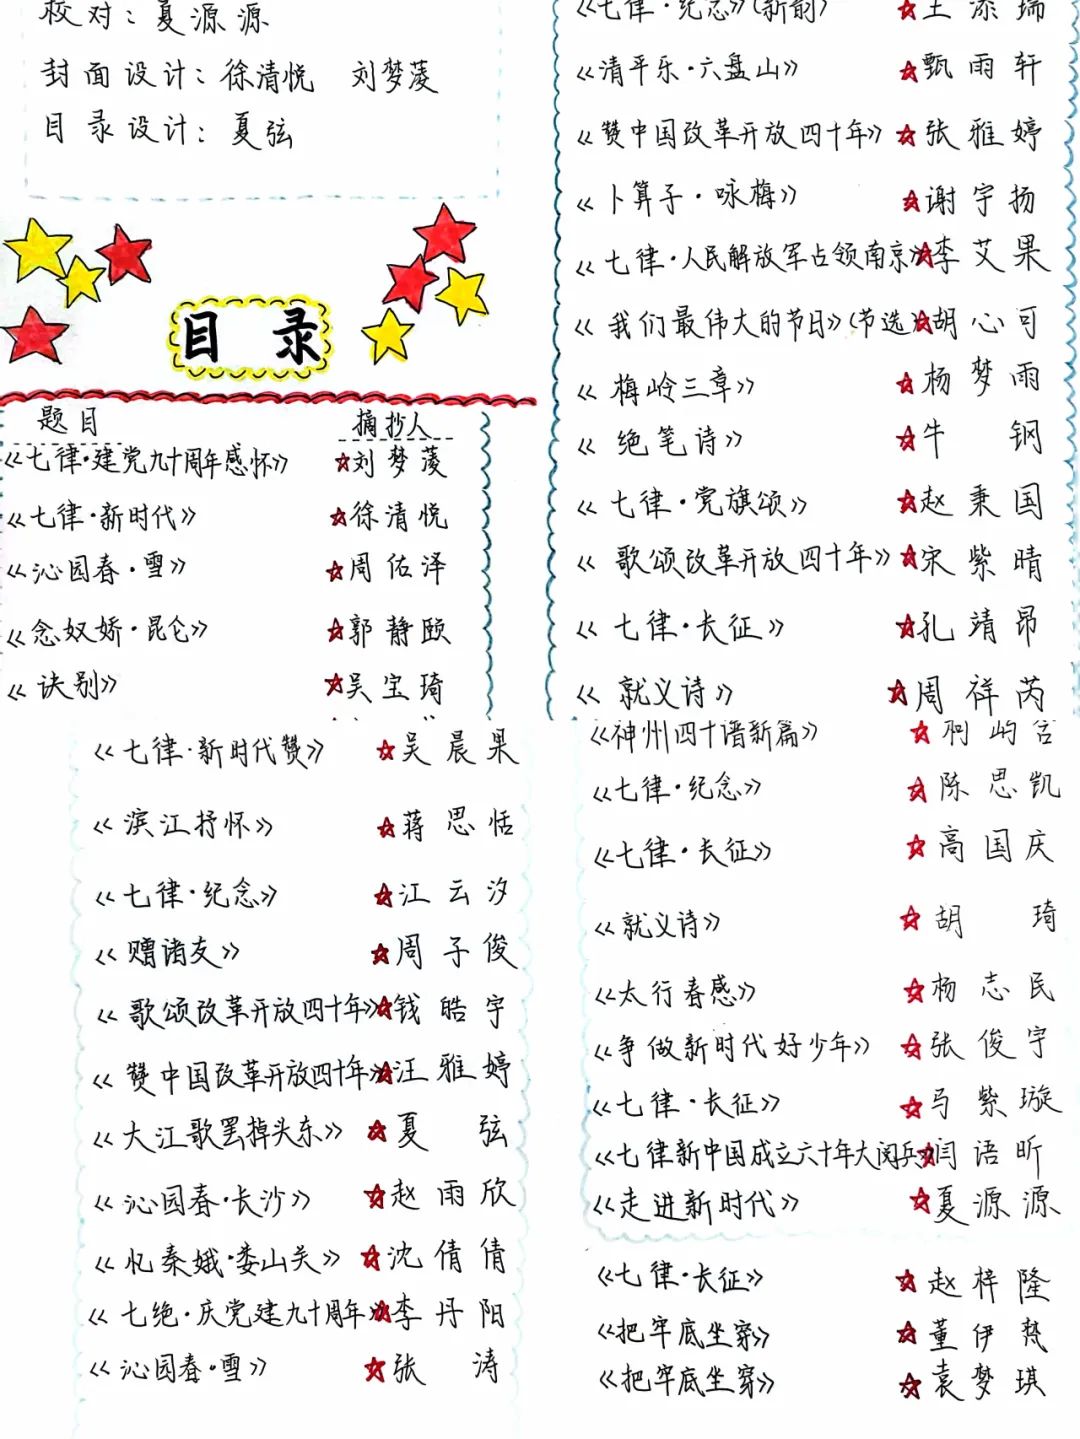 校对：夏源源
封面设计：徐清悦 刘梦菠
目录设计：夏弦
目录
题目 摘抄人
《七律·建党九十周年感怀》 刘梦菠
《七律·新时代》 徐清悦
《沁园春·雪》 周佑泽
《念奴娇·昆仑》 郭静颐
《诀别》 吴宝琦
《七律·纪念》(新韵) 王添瑞
《清平乐·六盘山》 甄雨轩
《赞中国改革开放四十年》 张雅婷
《卜算子·咏梅》 谢宇扬
《七律·人民解放军占领南京》 李艾果
《我们最伟大的节日》(节选) 胡心可
《梅岭三章》 杨梦雨
《绝笔诗》 牛钢
《七律·党旗颂》 赵秉国
《歌颂改革开放四十年》 宋紫晴
《七律·长征》 孔靖昂
《就义诗》 周祥芮
《七律·新时代赞》 吴晨果
《滨江抒怀》 蒋思恬
《七律·纪念》 江云汐
《赠诸友》 周子俊
《歌颂改革开放四十年》 钱皓宇
《赞中国改革开放四十年》 汪雅婷
《大江歌罢掉头东》 夏弦
《沁园春·长沙》 赵雨欣
《忆秦娥·娄山关》 沈倩倩
《七绝·庆党建九十周年》 李丹阳
《沁园春·雪》 张涛
《神州四十谱新篇》
《七律·纪念》 陈思凯
《七律·长征》 高国庆
《就义诗》 胡琦
《太行春感》 杨志民
《争做新时代好少年》 张俊宇
《七律·长征》 马紫璇
《七律新中国成立六十年大阅兵》 闫语昕
《走进新时代》 夏源源
《七律·长征》 赵梓隆
《把牢底坐穿》 董伊
《把牢底坐穿》 袁梦琪